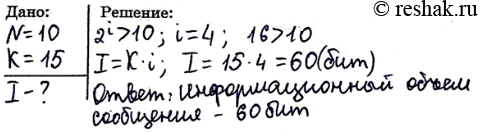 © reshak.ru
Дано: Решение:
N=10 2^i>10; i=4; 16>10
K=15 I=K·i; I=15·4=60(бит)
I-? Ответ: информационный объем
сообщения - 60 бит